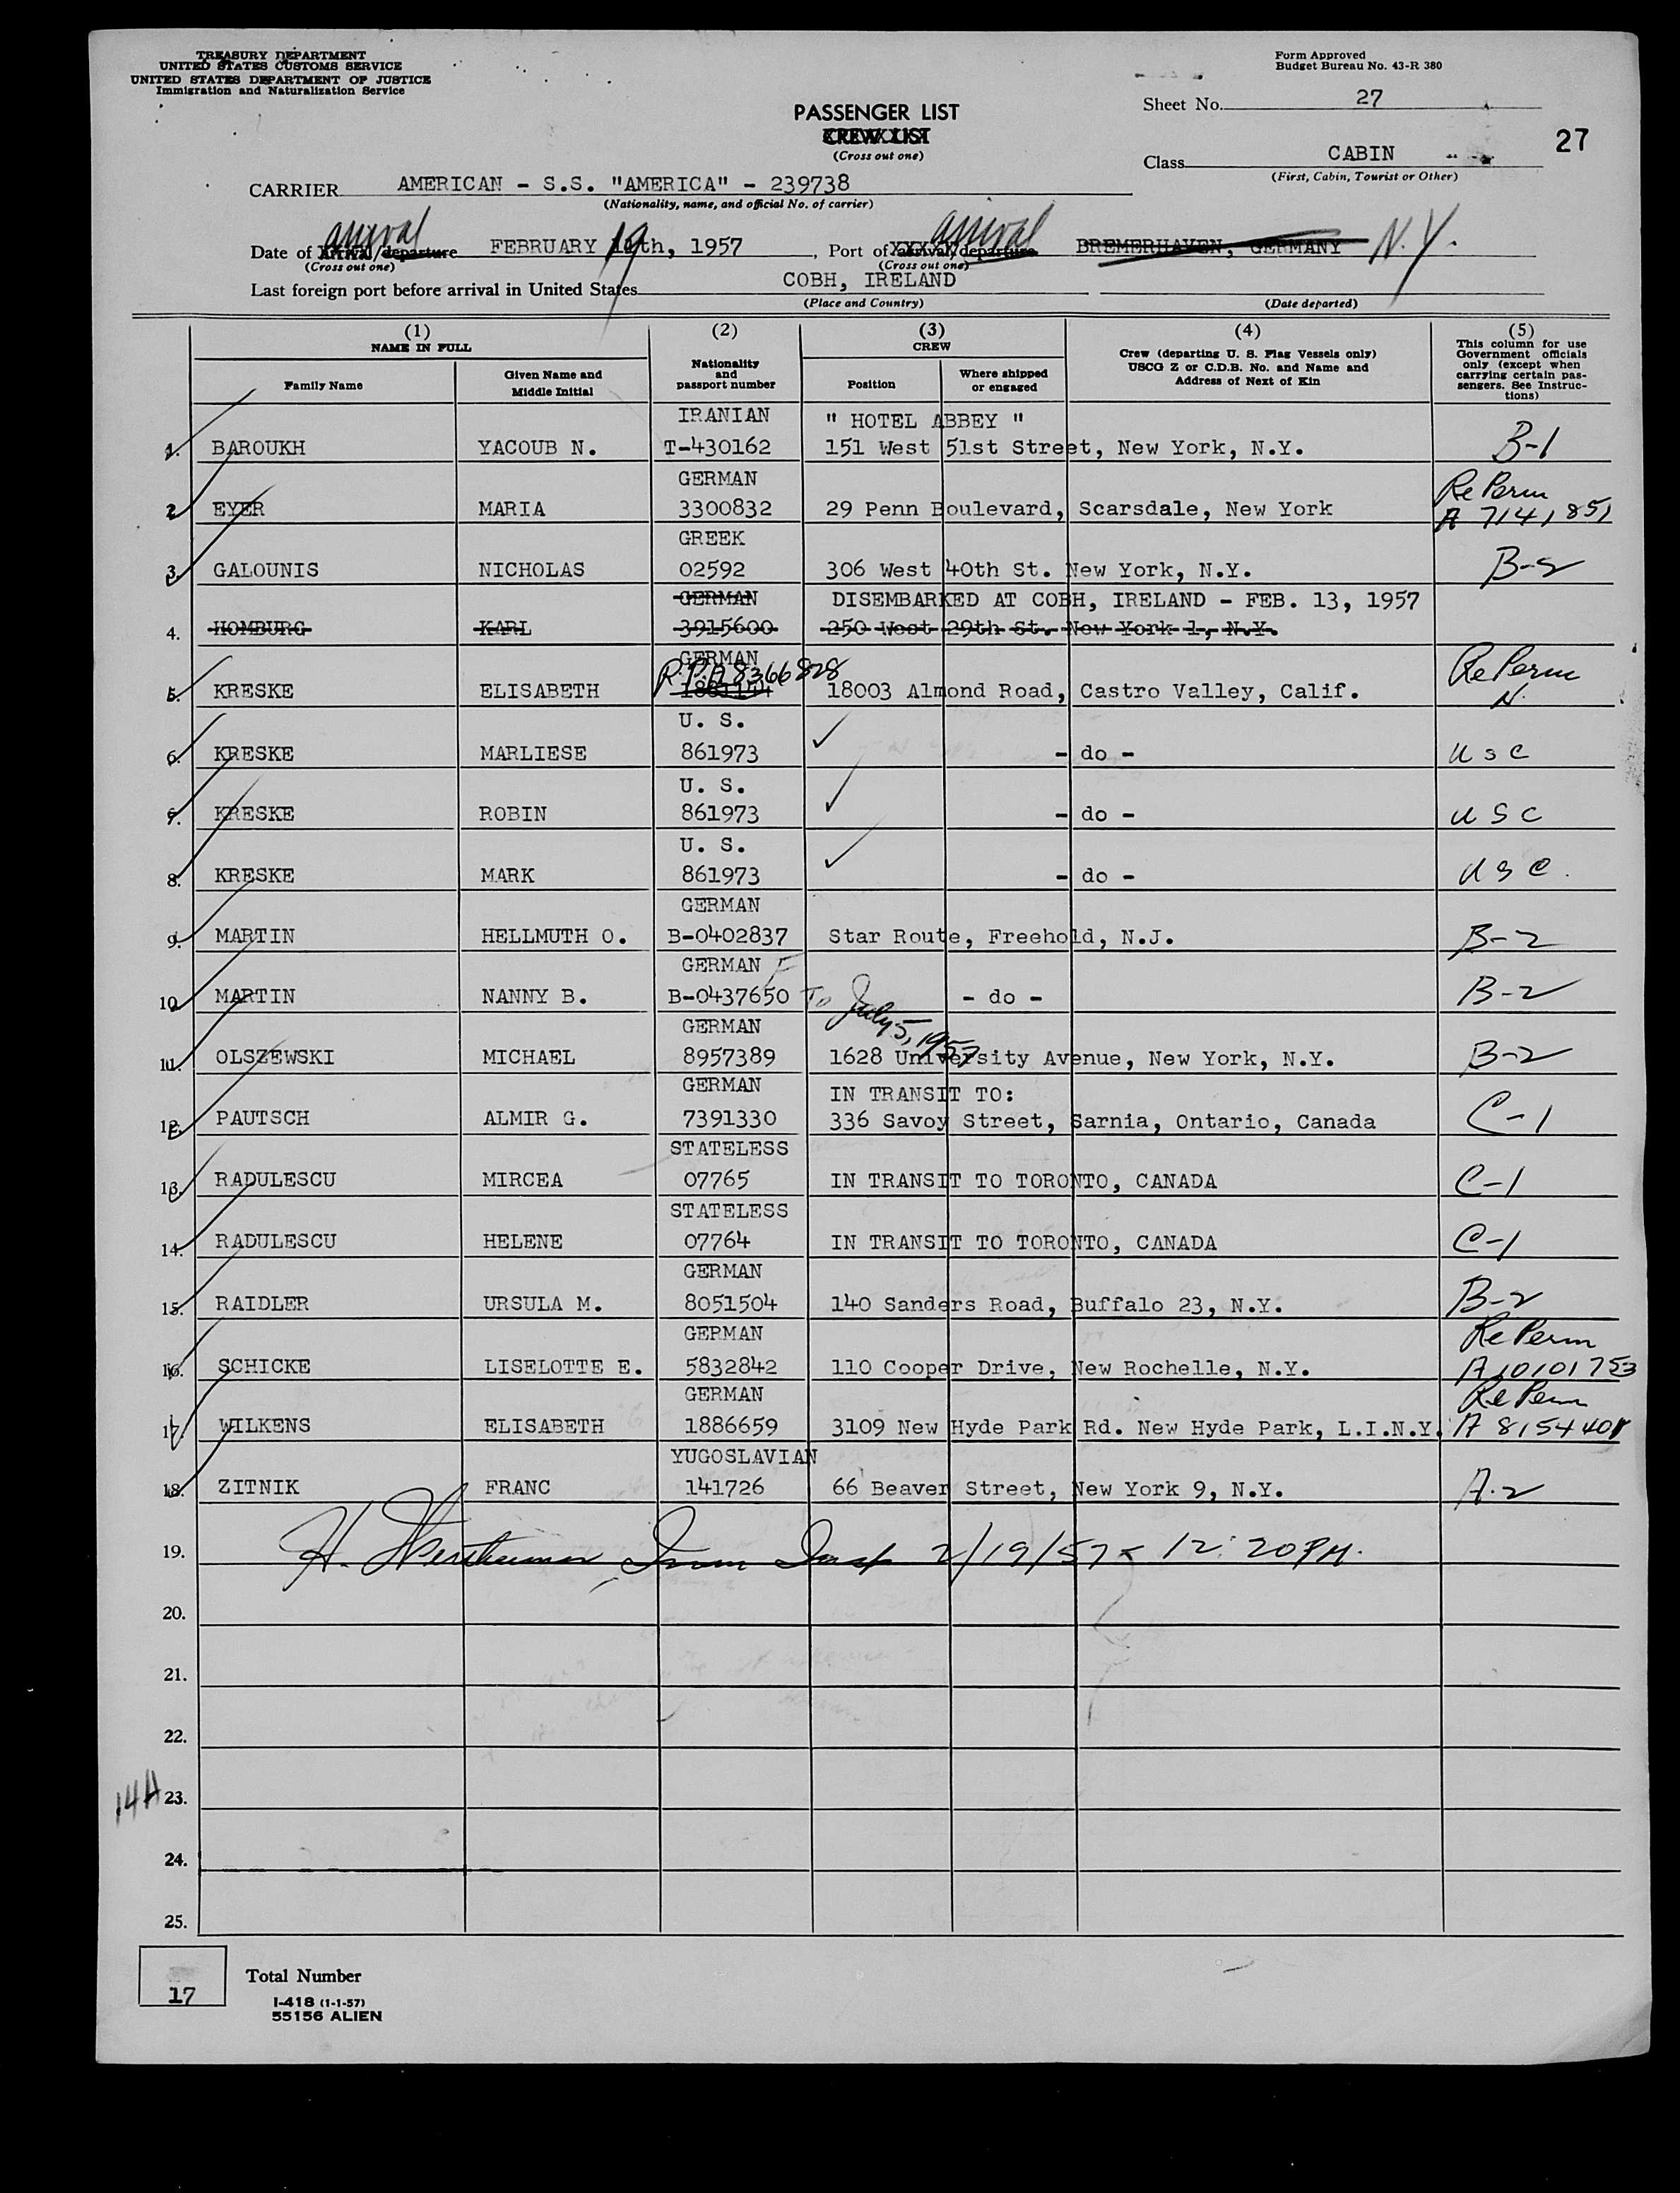 TREASURY DEPARTMENT
UNITED STATES CUSTOMS SERVICE
UNITED STATES DEPARTMENT OF JUSTICE
Immigration and Naturalization Service
Form Approved
Budget Bureau No. 43-R 380
Sheet No. 27
PASSENGER LIST
CREW LIST
(Cross out one)
27
Class CABIN
(First, Cabin, Tourist or Other)
CARRIER AMERICAN - S.S. "AMERICA" - 239738
(Nationality, name, and official No. of carrier)
arrival arrival
Date of arrival/departure FEBRUARY 19th, 1957, Port of arrival/departure BREMERHAVEN, GERMANY N.Y.
(Cross out one) (Cross out one)
Last foreign port before arrival in United States COBH, IRELAND
(Place and Country) (Date departed)
(1) (2) (3) (4) (5)
NAME IN FULL CREW
Family Name Given Name and Middle Initial Nationality and passport number Position Where shipped or engaged Crew (departing U. S. Flag Vessels only) USCG Z or C.D.B. No. and Name and Address of Next of Kin This column for use Government officials only (except when carrying certain passengers. See Instructions)
IRANIAN " HOTEL ABBEY "
1. BAROUKH YACOUB N. T-430162 151 West 51st Street, New York, N.Y. B-1
GERMAN Re Perm
2. EYER MARIA 3300832 29 Penn Boulevard, Scarsdale, New York A 7141851
GREEK
3. GALOUNIS NICHOLAS 02592 306 West 40th St. New York, N.Y. B-2
GERMAN DISEMBARKED AT COBH, IRELAND - FEB. 13, 1957
4. HOMBURG KARL 3915600 250 West 29th St. New York 1, N.Y.
GERMAN R.P. A8366828 Re Perm
5. KRESKE ELISABETH 18003 Almond Road, Castro Valley, Calif. N.
U. S.
6. KRESKE MARLIESE 861973 - do - USC
U. S.
7. KRESKE ROBIN 861973 - do - USC
U. S.
8. KRESKE MARK 861973 - do - USC.
GERMAN
9. MARTIN HELLMUTH O. B-0402837 Star Route, Freehold, N.J. B-2
GERMAN
10. MARTIN NANNY B. B-0437650 - do - B-2
To July 5, 1957
GERMAN
11. OLSZEWSKI MICHAEL 8957389 1628 University Avenue, New York, N.Y. B-2
GERMAN IN TRANSIT TO:
12. PAUTSCH ALMIR G. 7391330 336 Savoy Street, Sarnia, Ontario, Canada C-1
STATELESS
13. RADULESCU MIRCEA 07765 IN TRANSIT TO TORONTO, CANADA C-1
STATELESS
14. RADULESCU HELENE 07764 IN TRANSIT TO TORONTO, CANADA C-1
GERMAN
15. RAIDLER URSULA M. 8051504 140 Sanders Road, Buffalo 23, N.Y. B-2
GERMAN Re Perm
16. SCHICKE LISELOTTE E. 5832842 110 Cooper Drive, New Rochelle, N.Y. A10101753
GERMAN Re Perm
17. WILKENS ELISABETH 1886659 3109 New Hyde Park Rd. New Hyde Park, L.I.N.Y. A 8154401
YUGOSLAVIAN
18. ZITNIK FRANC 141726 66 Beaver Street, New York 9, N.Y. A-2
19. H. Imm Insp 2/19/57 - 12:20 PM.
20.
21.
22.
14A 23.
24.
25.
17 Total Number
I-418 (1-1-57)
55156 ALIEN